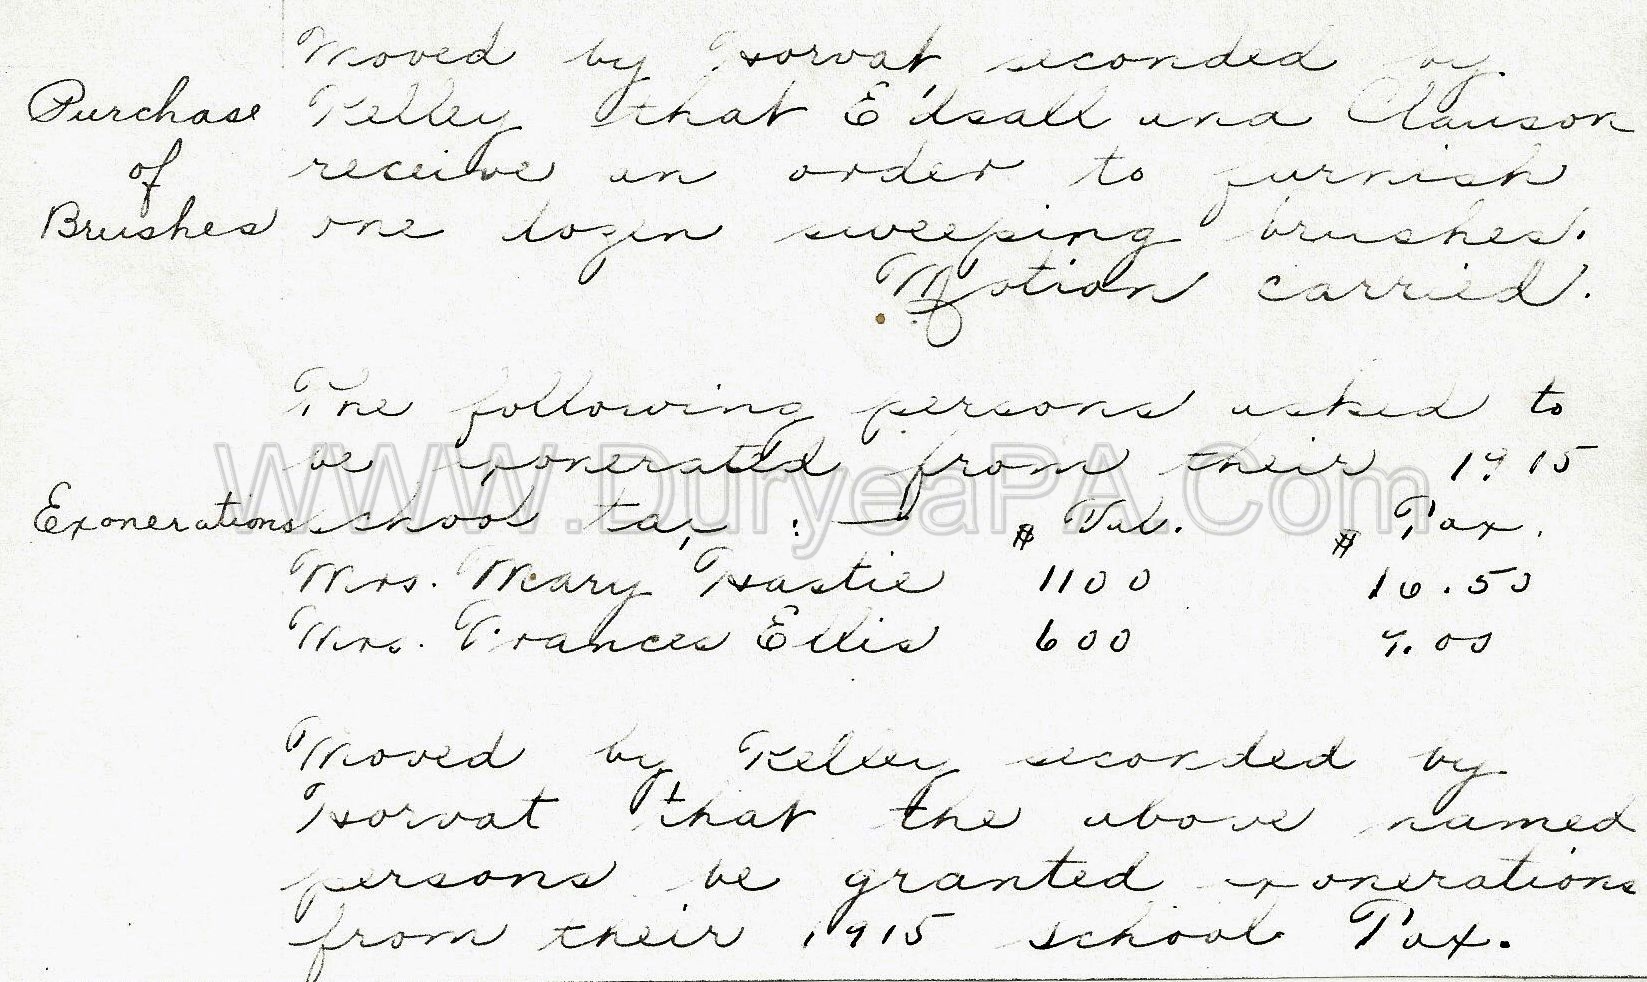 Moved by Horvat seconded by
Purchase Kelley that Edsall and Clauson
of receive an order to furnish
Brushes one dozen sweeping brushes.
Motion carried.
The following persons asked to
be exonerated from their 1915
WWW.DuryeaPA.Com
Exonerations school tax :— $ Val. $ Tax.
Mrs. Mary Hastie 1100 16.50
Mrs. Frances Ellis 600 9.00
Moved by Kelley seconded by
Horvat that the above named
persons be granted exonerations
from their 1915 school Tax.